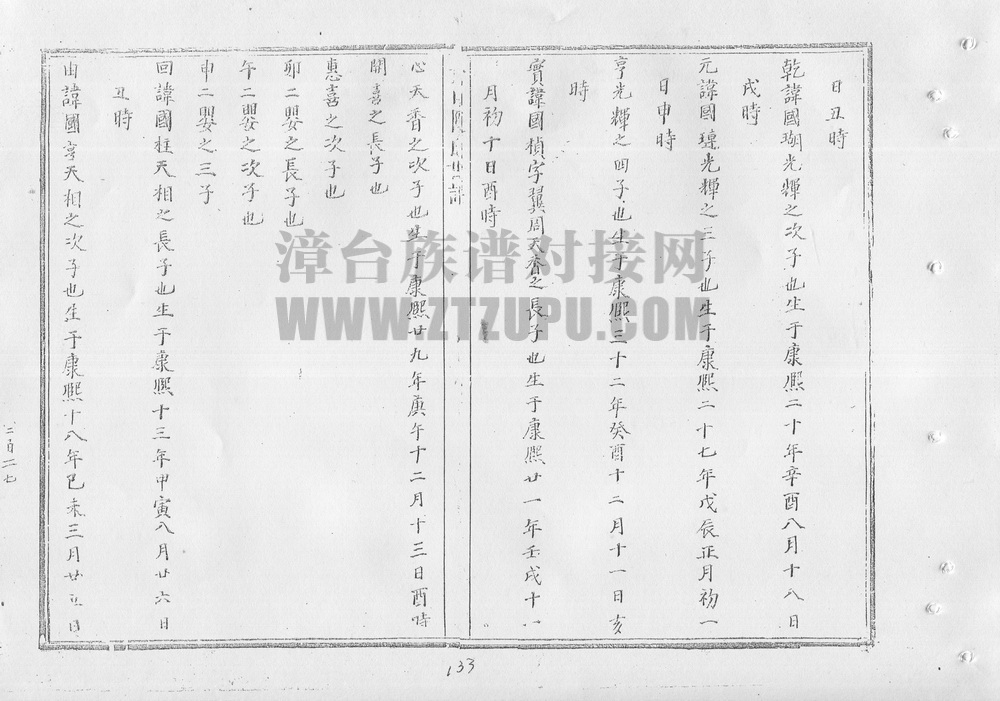 日丑時
乾諱國瑚光輝之次子也生于康熙二十年辛酉八月十八日
戌時
元諱國璉光輝之三子也生于康熙二十七年戊辰正月初一
日申時
亨光輝之四子也生于康熙三十二年癸酉十二月十一日亥
時
實諱國楨字翼周天眷之長子也生于康熙廿一年壬戌十一
月初十日酉時
心天眷之次子也生于康熙廿九年庚午十二月十三日酉時
開喜之長子也
惠喜之次子也
卯二嬰之長子也
午二嬰之次子也
申二嬰之三子
回諱國柱天相之長子也生于康熙十三年甲寅八月廿六日
丑時
由諱國亨天相之次子也生于康熙十八年己未三月廿五日
二百二七
133
漳台族谱对接网
WWW.ZTZUPU.COM